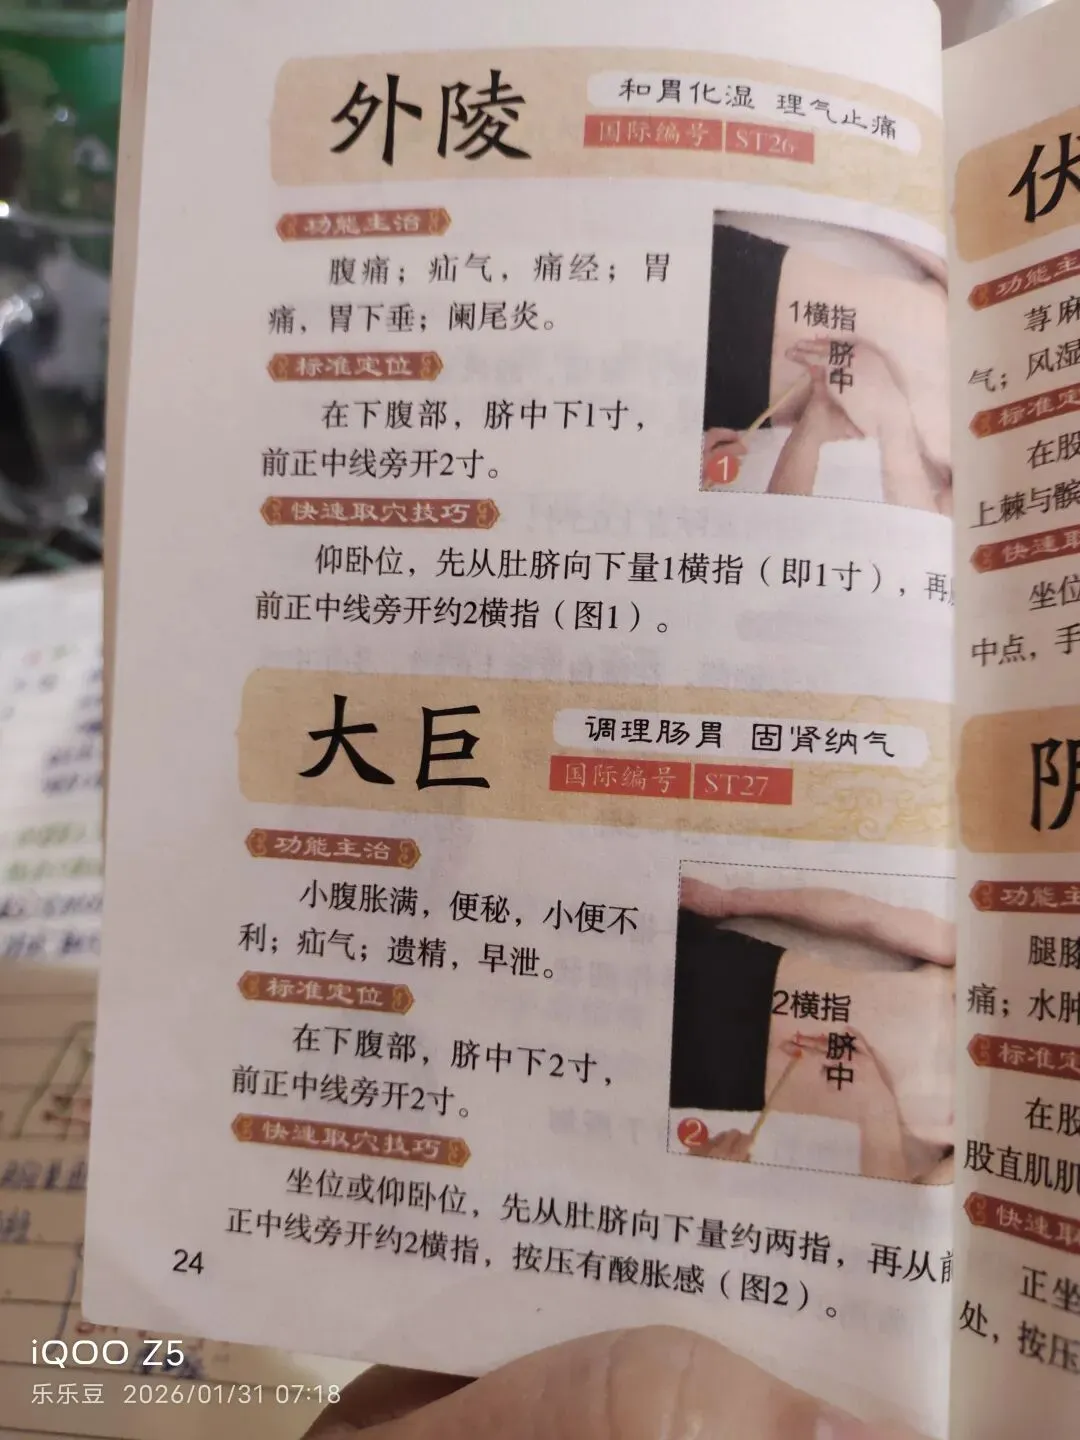 外陵
和胃化湿 理气止痛
国际编号 ST26
功能主治
腹痛；疝气，痛经；胃
痛，胃下垂；阑尾炎。
标准定位
在下腹部，脐中下1寸，
前正中线旁开2寸。
1横指
脐中
1
快速取穴技巧
仰卧位，先从肚脐向下量1横指（即1寸），再
前正中线旁开约2横指（图1）。
大巨
调理肠胃 固肾纳气
国际编号 ST27
功能主治
小腹胀满，便秘，小便不
利；疝气；遗精，早泄。
标准定位
在下腹部，脐中下2寸，
前正中线旁开2寸。
2横指
脐中
2
快速取穴技巧
坐位或仰卧位，先从肚脐向下量约两指，再从前
正中线旁开约2横指，按压有酸胀感（图2）。
24
伏
功能主
荨麻
气；风湿
标准定
在股
上棘与髌
快速取
坐位
中点，手
阴
功能主
腿膝
痛；水肿
标准定
在股
股直肌肌
快速取
正坐
处，按压
iQOO Z5
乐乐豆 2026/01/31 07:18